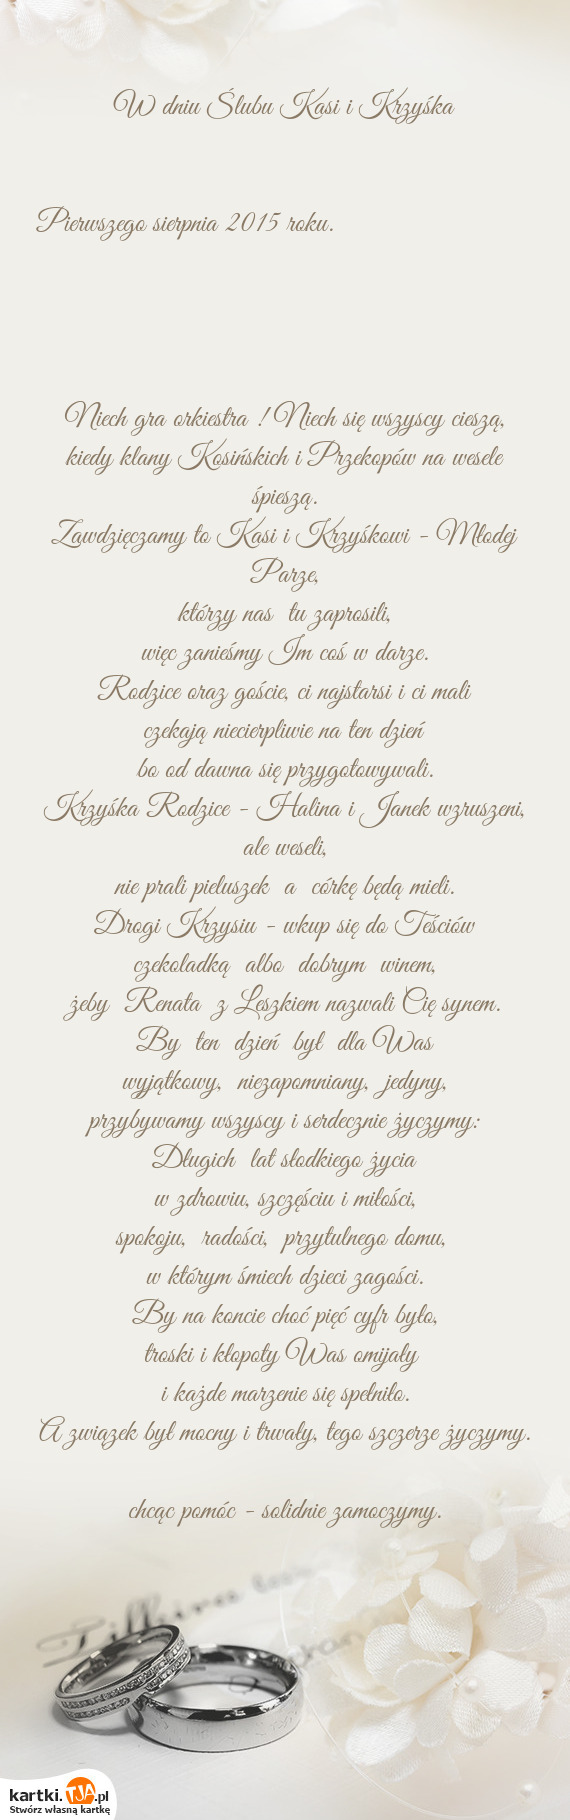 W dniu Ślubu Kasi i Krzyśka
Pierwszego sierpnia 2015 roku.
Niech gra orkiestra ! Niech się wszyscy cieszą,
kiedy klany Kosińskich i Przekopów na wesele
śpieszą.
Zawdzięczamy to Kasi i Krzyśkowi - Młodej
Parze,
którzy nas tu zaprosili,
więc zanieśmy Im coś w darze.
Rodzice oraz goście, ci najstarsi i ci mali
czekają niecierpliwie na ten dzień
bo od dawna się przygotowywali.
Krzyśka Rodzice - Halina i Janek wzruszeni,
ale weseli,
nie prali pieluszek a córkę będą mieli.
Drogi Krzysiu - wkup się do Teściów
czekoladką albo dobrym winem,
żeby Renata z Leszkiem nazwali Cię synem.
By ten dzień był dla Was
wyjątkowy, niezapomniany, jedyny,
przybywamy wszyscy i serdecznie życzymy:
Długich lat słodkiego życia
w zdrowiu, szczęściu i miłości,
spokoju, radości, przytulnego domu,
w którym śmiech dzieci zagości.
By na koncie choć pięć cyfr było,
troski i kłopoty Was omijały
i każde marzenie się spełniło.
A związek był mocny i trwały, tego szczerze życzymy.
chcąc pomóc - solidnie zamoczymy.
kartki.TJA.pl
Stwórz własną kartkę